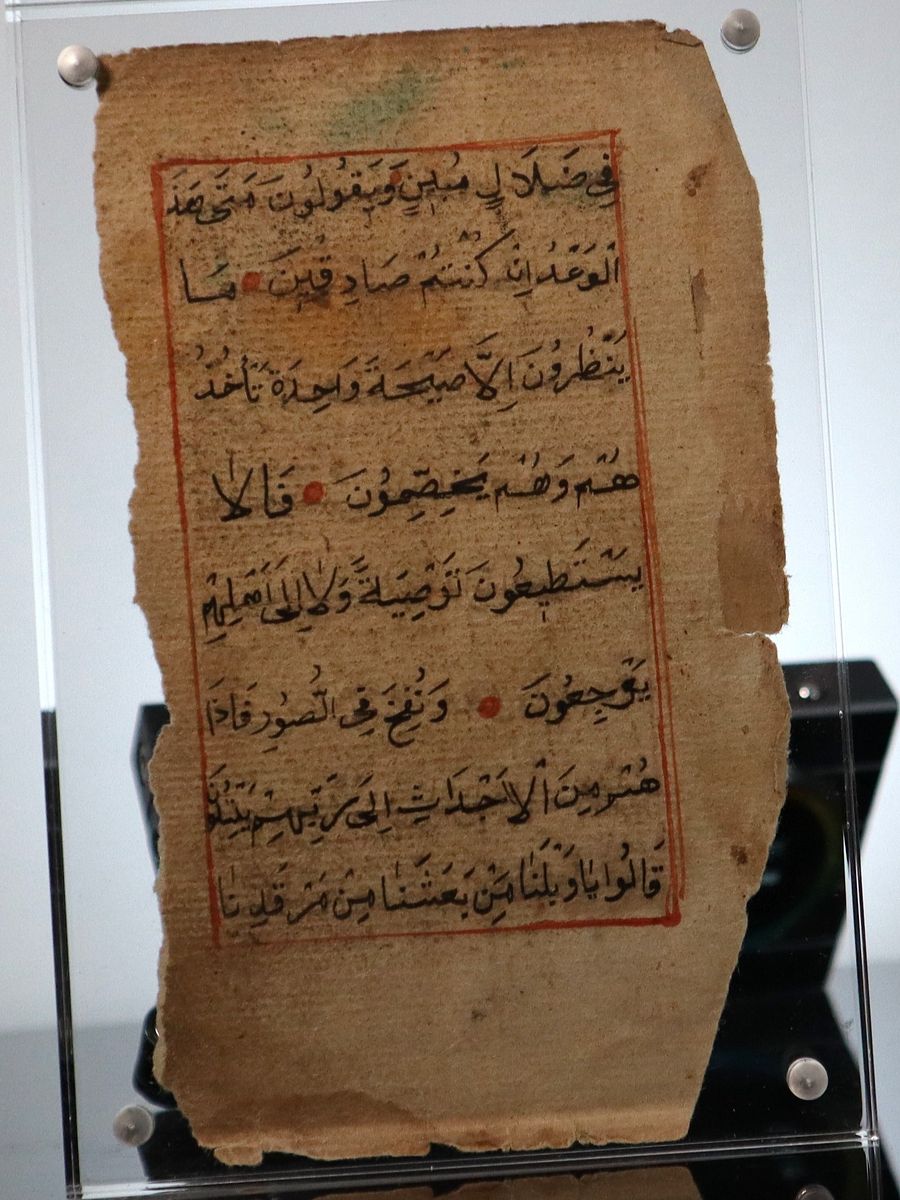 فِي ضَلَالٍ مُبِينٍ وَيَقُولُونَ مَتَى هَذَ
الْوَعْدُ اِنْ كُنْتُمْ صَادِقِينَ مَا
يَنْظُرُونَ اِلَّا صَيْحَةً وَاحِدَةً تَأْخُذُ
هُمْ وَهُمْ يَخِصِّمُونَ فَالَا
يَسْتَطِيعُونَ تَوْصِيَةً وَلَا اِلَى اَهْلِهِمْ
يَرْجِعُونَ وَنُفِخَ فِي الصُّورِ فَاِذَا
هُمْ مِنَ الْاَجْدَاثِ اِلَى رَبِّهِمْ يَنْسِلُونَ
قَالُوا يَاوَيْلَنَا مَنْ بَعَثَنَا مِنْ مَرْقَدِنَا